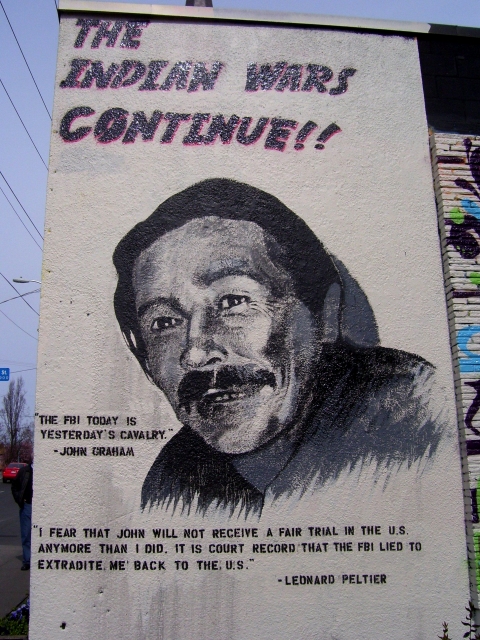 THE
INDIAN WARS
CONTINUE!!
"THE FBI TODAY IS
YESTERDAY'S CAVALRY."
-JOHN GRAHAM
"I FEAR THAT JOHN WILL NOT RECEIVE A FAIR TRIAL IN THE U.S.
ANYMORE THAN I DID. IT IS COURT RECORD THAT THE FBI LIED TO
EXTRADITE ME BACK TO THE U.S."
-LEONARD PELTIER